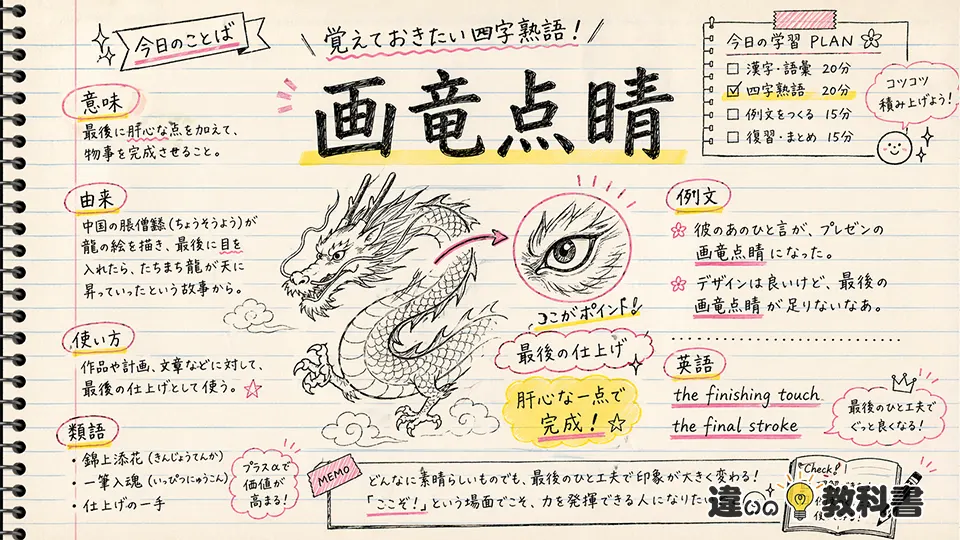 今日のことば
覚えておきたい四字熟語！
画竜点睛
今日の学習 PLAN
漢字・語彙 20分
四字熟語 20分
例文をつくる 15分
復習・まとめ 15分
コツコツ
積み上げよう！
意味
最後に肝心な点を加えて、
物事を完成させること。
由来
中国の（ちょうそうよう）が
龍の絵を描き、最後に目を
入れたら、たちまち龍が天に
昇っていったという故事から。
使い方
作品や計画、文章などに対して、
最後の仕上げとして使う。
類語
・錦上添花（きんじょうてんか）
・一筆入魂（いっぴつにゅうこん）
・仕上げの一手
プラスαで
価値が
高まる！
ここがポイント！
最後の仕上げ
肝心な一点で
完成！
例文
彼のあのひと言が、プレゼンの
画竜点睛になった。
デザインは良いけど、最後の
画竜点睛が足りないなあ。
英語
the finishing touch
the final stroke
最後のひと工夫で
ぐっと良くなる！
MEMO
どんなに素晴らしいものも、最後のひと工夫で印象が大きく変わる！
「ここぞ！」という場面でこそ、力を発揮できる人になりた
Check!
違いの教科書